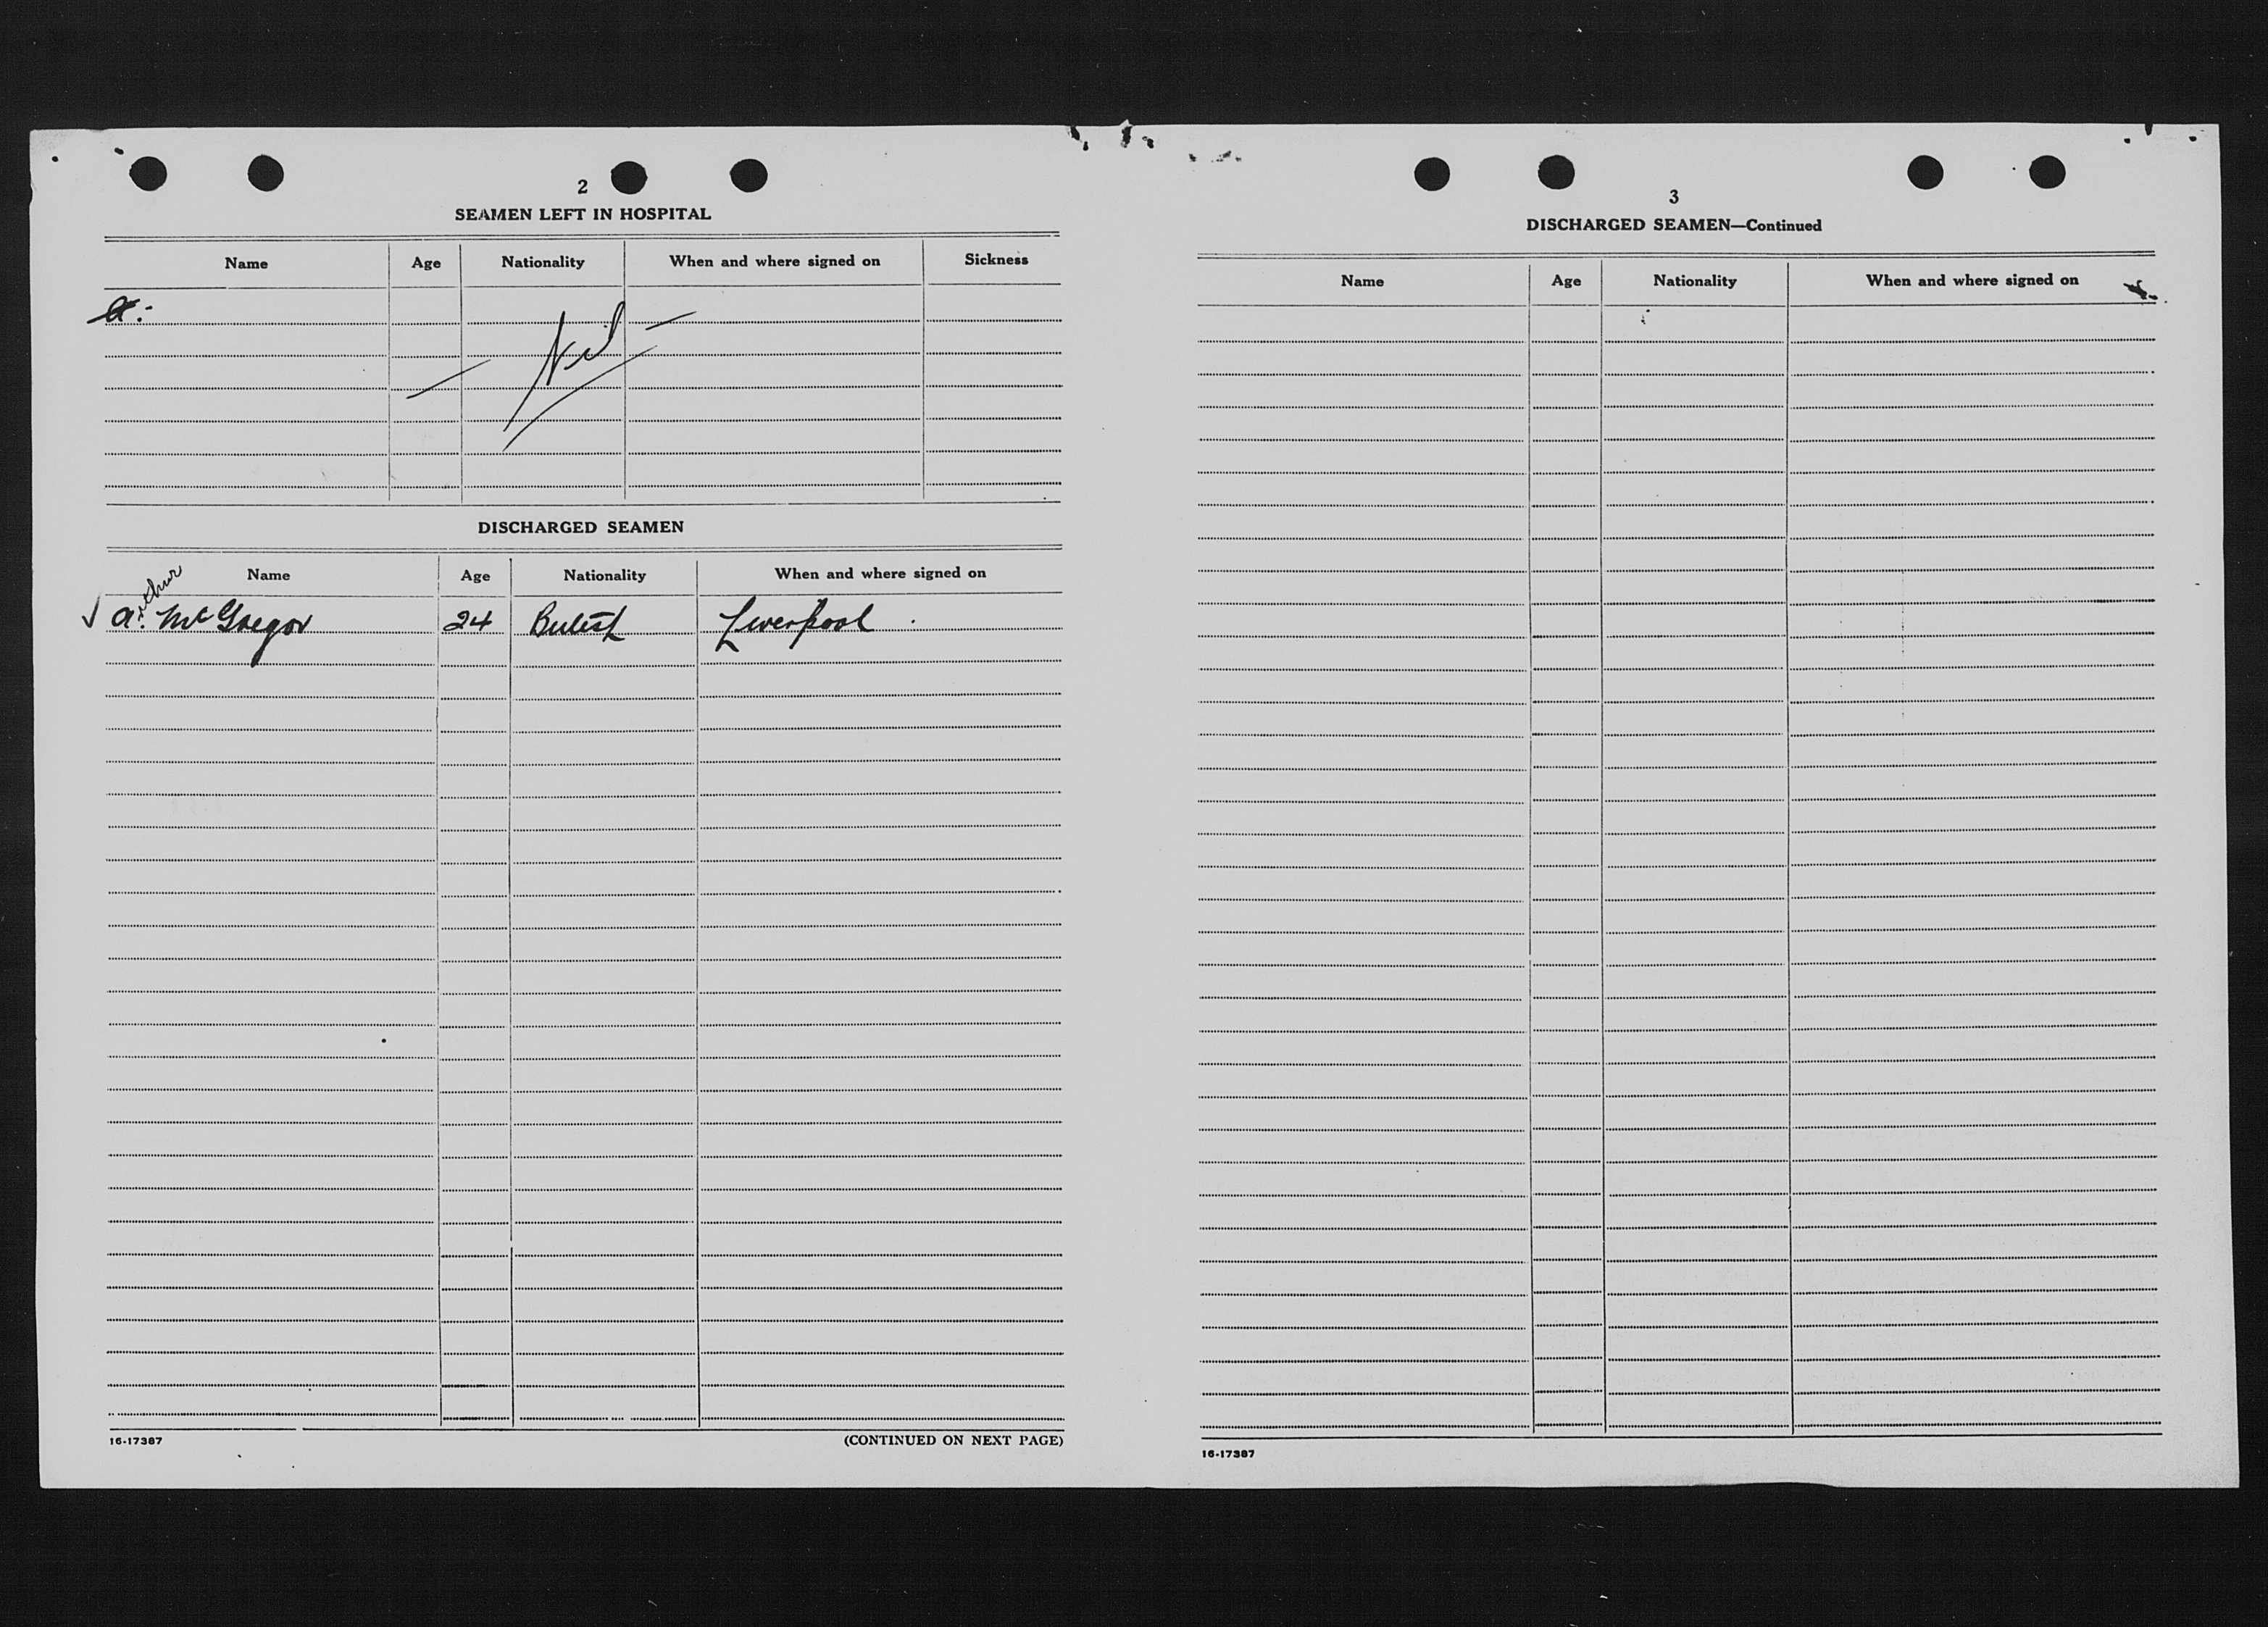 2
SEAMEN LEFT IN HOSPITAL
Name Age Nationality When and where signed on Sickness
a.
Nil
DISCHARGED SEAMEN
Name Age Nationality When and where signed on
Arthur
A. McGregor 24 British Liverpool
16-17387
(CONTINUED ON NEXT PAGE)
3
DISCHARGED SEAMEN—Continued
Name Age Nationality When and where signed on
16-17387